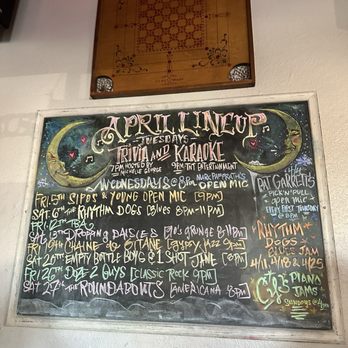 APRIL LINEUP
TUESDAYS
TRIVIA AND KARAOKE
7PM HOSTED BY
MICHELLE GEORGE
9PM TNT ENTERTAINMENT
WEDNESDAYS @ 8PM
OPEN MIC
FRI 5TH SIPOS & YOUNG OPEN MIC
SAT 6TH THE RHYTHM DOGS [BLUES 8PM-11PM]
FRI 12TH TBA
SAT 13TH DROPPING DAISIES [90'S GRUNGE 8/11PM]
FRI 19TH CHAINE DE GITANE [GYPSY JAZZ 9PM]
SAT 20TH EMPTY BOTTLE BOYS @ 1 SHOT JANE [8PM]
FRI 26TH DOZE 2 GUYS [CLASSIC ROCK 9PM]
SAT 27TH THE ROUNDABOUTS [AMERICANA 8PM]
PAT GARRETT'S
PICK'N'PULL
open mic
EVERY FIRST THURSDAY
@ 8PM
RHYTHM
DOGS
JAM
4/11, 4/18 & 4/25
PIANO
JAMS
SUNDAYS @